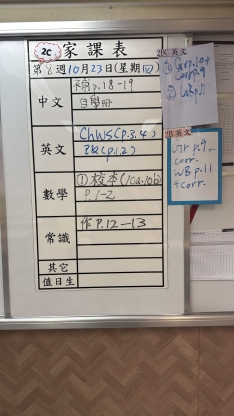 2C 家課表
第8週10月23日(星期四)
中文
補p.18-19
自學冊
英文
Chws(p.3,4)
數學
①校本(10a,10b)
p.1-2
常識
作P.12-13
其它
值日生
2C 英文
①
corr p.9
②
2B 英文
Gr p.9 +
corr.
WB p.11
+corr.